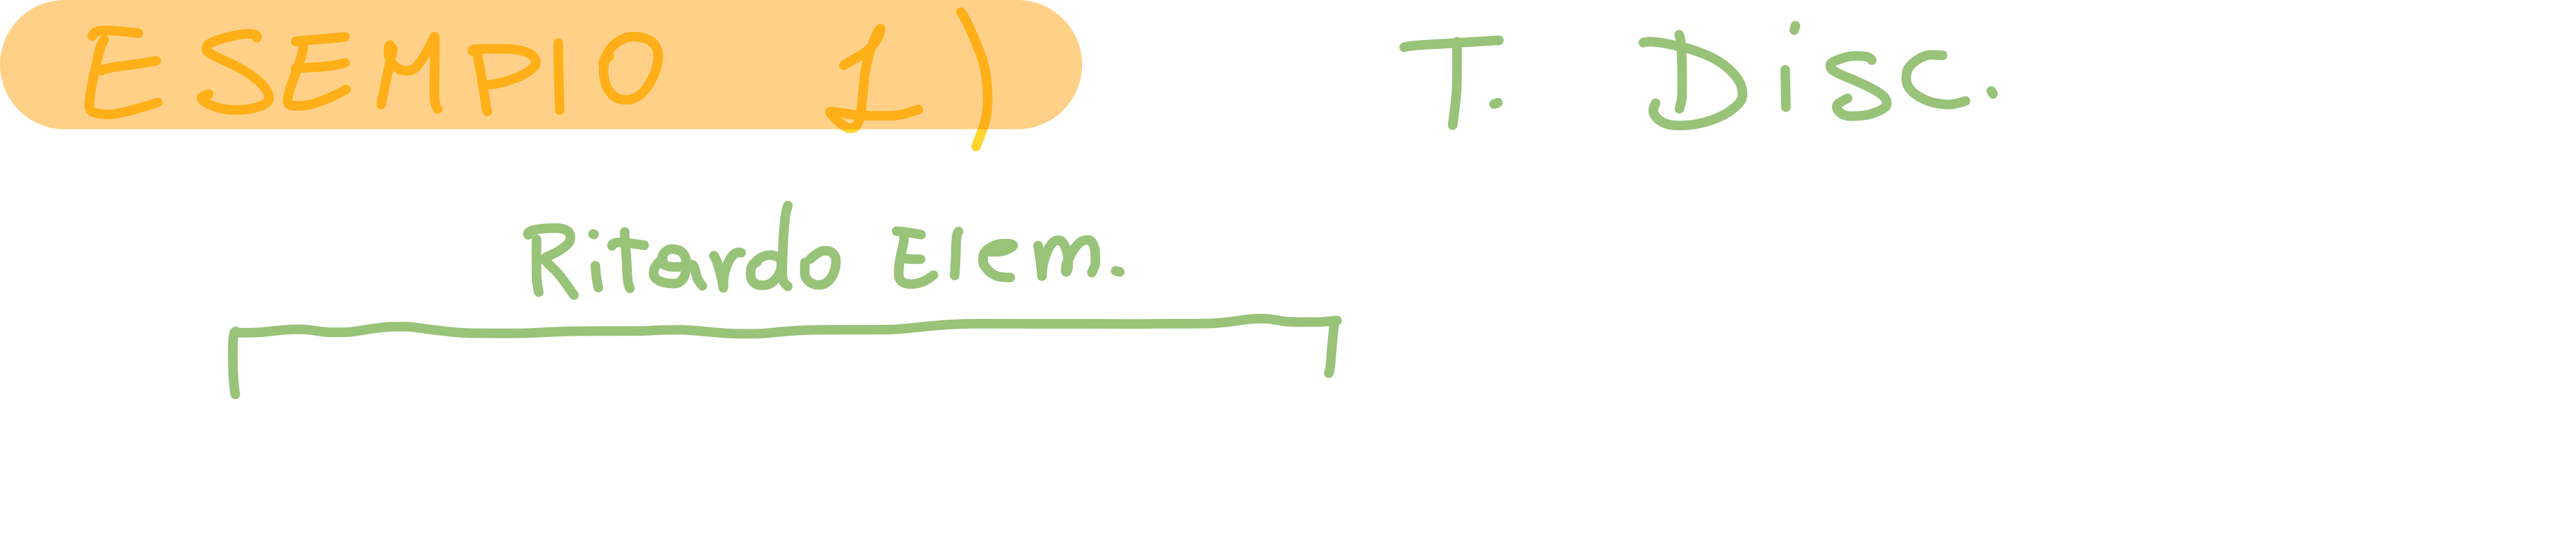 ESEMPIO 1) T. Disc.
Ritardo Elem.